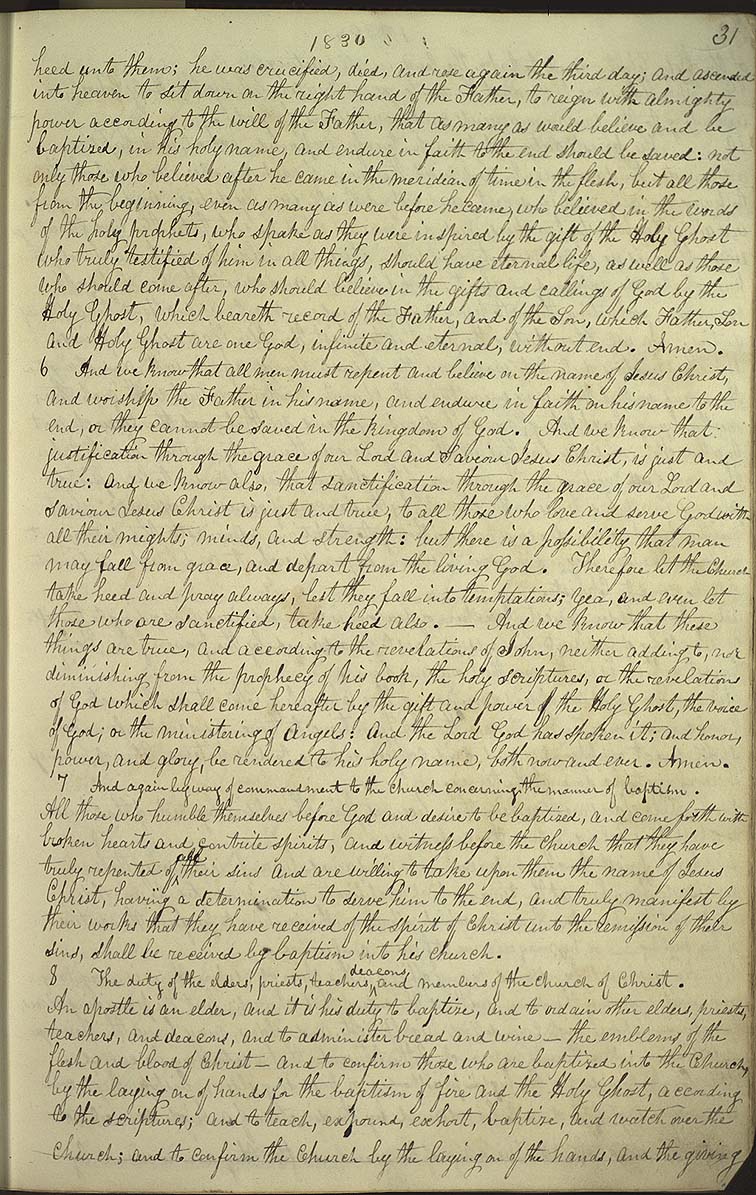 1830
31
heed unto them; he was crucified, died, and rose again the third day; and ascended
into heaven to sit down on the right hand of the Father, to reign with almighty
power according to the will of the Father, that as many as would believe and be
baptized, in his holy name, and endure in faith to the end should be saved: not
only those who believed after he came in the meridian of time in the flesh, but all those
from the beginning, even as many as were before he came, who believed in the words
of the holy prophets, who spake as they were inspired by the gift of the Holy Ghost
who truly testified of him in all things, should have eternal life, as well as those
who should come after, who should believe in the gifts and callings of God by the
Holy Ghost, which beareth record of the Father, and of the Son, which Father, Son
and Holy Ghost are one God, infinite and eternal, without end. Amen.
6 And we know that all men must repent and believe on the name of Jesus Christ,
and worship the Father in his name, and endure in faith on his name to the
end, or they cannot be saved in the kingdom of God. And we know that
justification through the grace of our Lord and Saviour Jesus Christ, is just and
true: and we know also, that sanctification through the grace of our Lord and
Saviour Jesus Christ is just and true, to all those who love and serve God with
all their mights, minds, and strength: but there is a possibility that man
may fall from grace, and depart from the living God. Therefore let the Church
take heed and pray always, lest they fall into temptations; yea, and even let
those who are sanctified, take heed also. — And we know that these
things are true, and according to the revelations of John, neither adding to, nor
diminishing from the prophecy of his book, the holy scriptures, or the revelations
of God which shall come hereafter by the gift and power of the Holy Ghost, the voice
of God; or the ministering of angels: And the Lord God has spoken it; and honor,
power, and glory, be rendered to his holy name, both now and ever. Amen.
7 And again by way of commandment to the church concerning the manner of baptism.
All those who humble themselves before God and desire to be baptized, and come forth with
broken hearts and contrite spirits, and witness before the church that they have
truly repented of all their sins and are willing to take upon them the name of Jesus
Christ, having a determination to serve him to the end, and truly manifest by
their works that they have received of the spirit of Christ unto the remission of their
sins, shall be received by baptism into his church.
8 The duty of the elders, priests, teachers, deacons and members of the church of Christ.
An apostle is an elder, and it is his duty to baptize, and to ordain other elders, priests,
teachers, and deacons, and to administer bread and wine — the emblems of the
flesh and blood of Christ — and to confirm those who are baptized into the Church,
by the laying on of hands for the baptism of fire and the Holy Ghost, according
to the scriptures; and to teach, expound, exhort, baptize, and watch over the
Church; and to confirm the Church by the laying on of the hands, and the giving